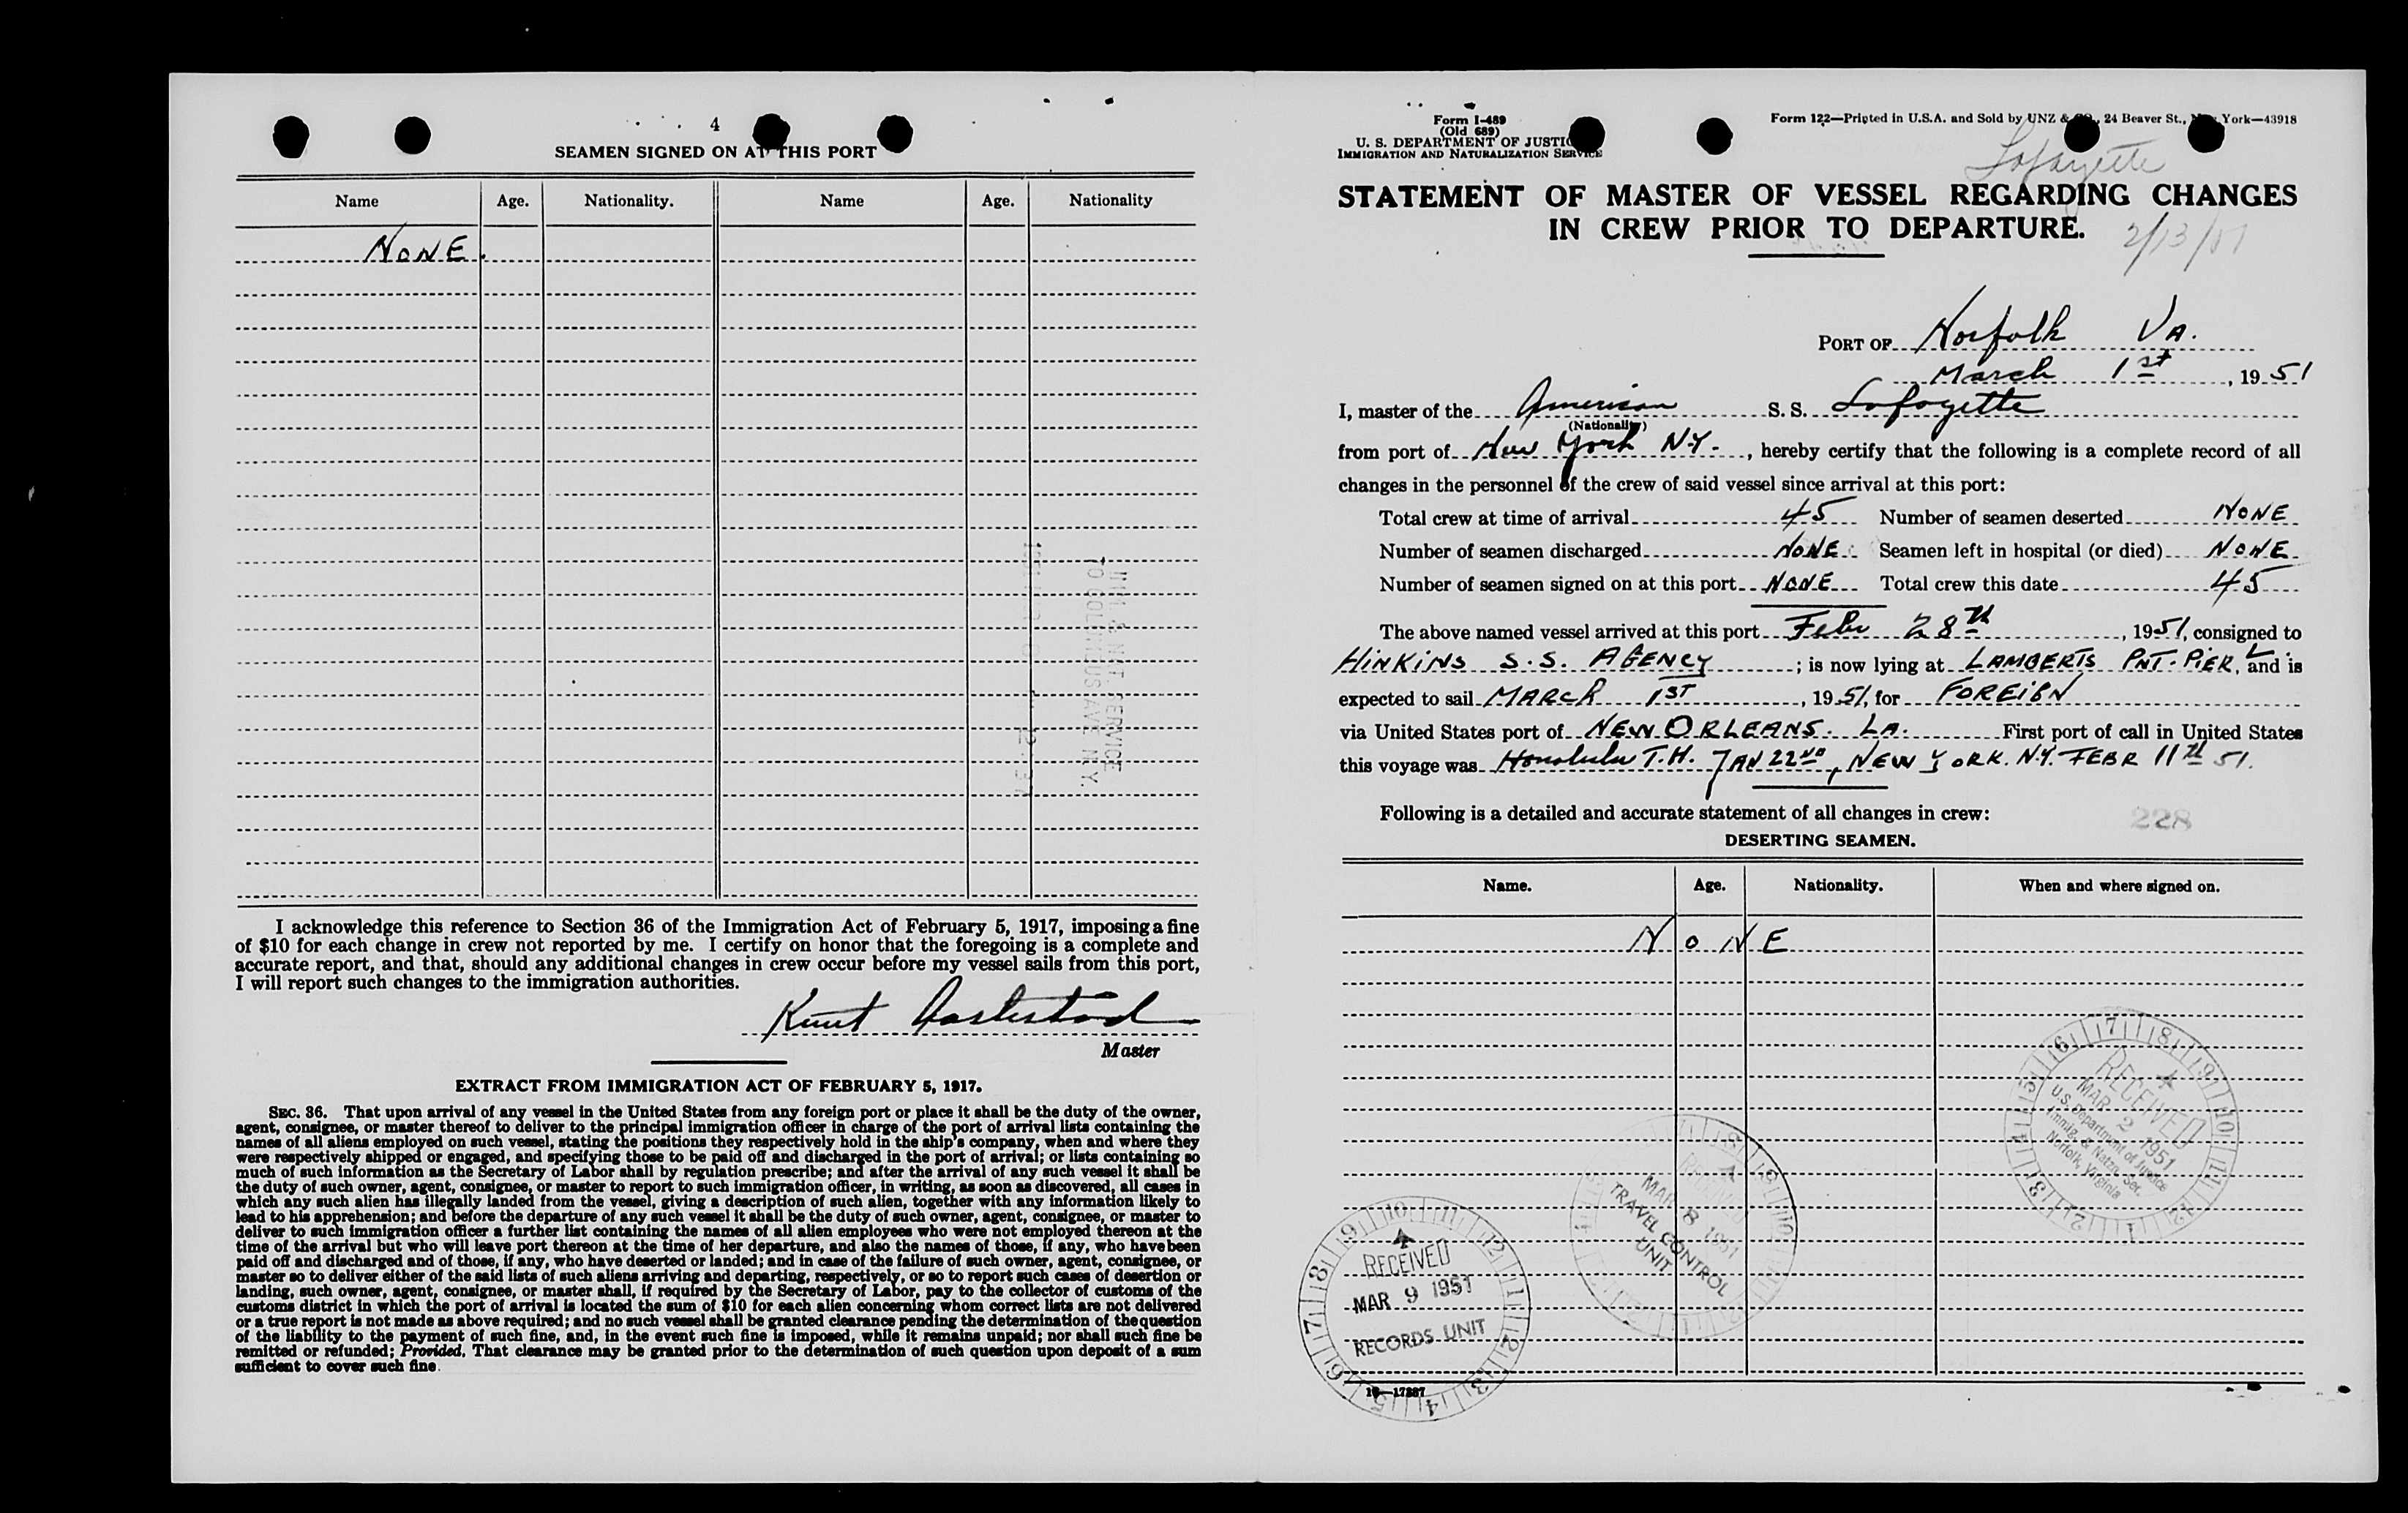 4
SEAMEN SIGNED ON AT THIS PORT
Name Age. Nationality. Name Age. Nationality
NONE.
IMM. & NAT. SERVICE
70 COLUMBUS AVE N.Y.
I acknowledge this reference to Section 36 of the Immigration Act of February 5, 1917, imposing a fine
of $10 for each change in crew not reported by me. I certify on honor that the foregoing is a complete and
accurate report, and that, should any additional changes in crew occur before my vessel sails from this port,
I will report such changes to the immigration authorities.
Knut
Master
EXTRACT FROM IMMIGRATION ACT OF FEBRUARY 5, 1917.
SEC. 36. That upon arrival of any vessel in the United States from any foreign port or place it shall be the duty of the owner,
agent, consignee, or master thereof to deliver to the principal immigration officer in charge of the port of arrival lists containing the
names of all aliens employed on such vessel, stating the positions they respectively hold in the ship's company, when and where they
were respectively shipped or engaged, and specifying those to be paid off and discharged in the port of arrival; or lists containing so
much of such information as the Secretary of Labor shall by regulation prescribe; and after the arrival of any such vessel it shall be
the duty of such owner, agent, consignee, or master to report to such immigration officer, in writing, as soon as discovered, all cases in
which any such alien has illegally landed from the vessel, giving a description of such alien, together with any information likely to
lead to his apprehension; and before the departure of any such vessel it shall be the duty of such owner, agent, consignee, or master to
deliver to such immigration officer a further list containing the names of all alien employees who were not employed thereon at the
time of the arrival but who will leave port thereon at the time of her departure, and also the names of those, if any, who have been
paid off and discharged and of those, if any, who have deserted or landed; and in case of the failure of such owner, agent, consignee, or
master so to deliver either of the said lists of such aliens arriving and departing, respectively, or so to report such cases of desertion or
landing, such owner, agent, consignee, or master shall, if required by the Secretary of Labor, pay to the collector of customs of the
customs district in which the port of arrival is located the sum of $10 for each alien concerning whom correct lists are not delivered
or a true report is not made as above required; and no such vessel shall be granted clearance pending the determination of the question
of the liability to the payment of such fine, and, in the event such fine is imposed, while it remains unpaid; nor shall such fine be
remitted or refunded; Provided, That clearance may be granted prior to the determination of such question upon deposit of a sum
sufficient to cover such fine.
Form I-489
(Old 689)
U. S. DEPARTMENT OF JUSTICE
IMMIGRATION AND NATURALIZATION SERVICE
Form 122—Printed in U.S.A. and Sold by UNZ & CO., 24 Beaver St., New York—43918
Lafayette
STATEMENT OF MASTER OF VESSEL REGARDING CHANGES
IN CREW PRIOR TO DEPARTURE.
2/13/51
PORT OF Norfolk VA.
March 1st, 1951
I, master of the American S. S. Lafayette
(Nationality)
from port of New York N.Y., hereby certify that the following is a complete record of all
changes in the personnel of the crew of said vessel since arrival at this port:
Total crew at time of arrival 45 Number of seamen deserted NONE
Number of seamen discharged NONE Seamen left in hospital (or died) NONE
Number of seamen signed on at this port NONE Total crew this date 45
The above named vessel arrived at this port Febr 28th, 1951, consigned to
HINKINS S.S. AGENCY; is now lying at LAMBERTS PNT. PIER, and is
expected to sail MARCH 1ST, 1951, for FOREIGN
via United States port of NEW ORLEANS. LA. First port of call in United States
this voyage was Honolulu T.H. JAN 22ND, NEW YORK. N.Y. FEBR 11th 51.
Following is a detailed and accurate statement of all changes in crew:
228
DESERTING SEAMEN.
Name. Age. Nationality. When and where signed on.
NONE
RECEIVED
MAR 2 1951
U.S. Department of Justice
Immig. & Natzn. Ser.
Norfolk, Virginia
RECEIVED
MAR 8 1951
TRAVEL CONTROL
UNIT
RECEIVED
MAR 9 1951
RECORDS UNIT
16—17887